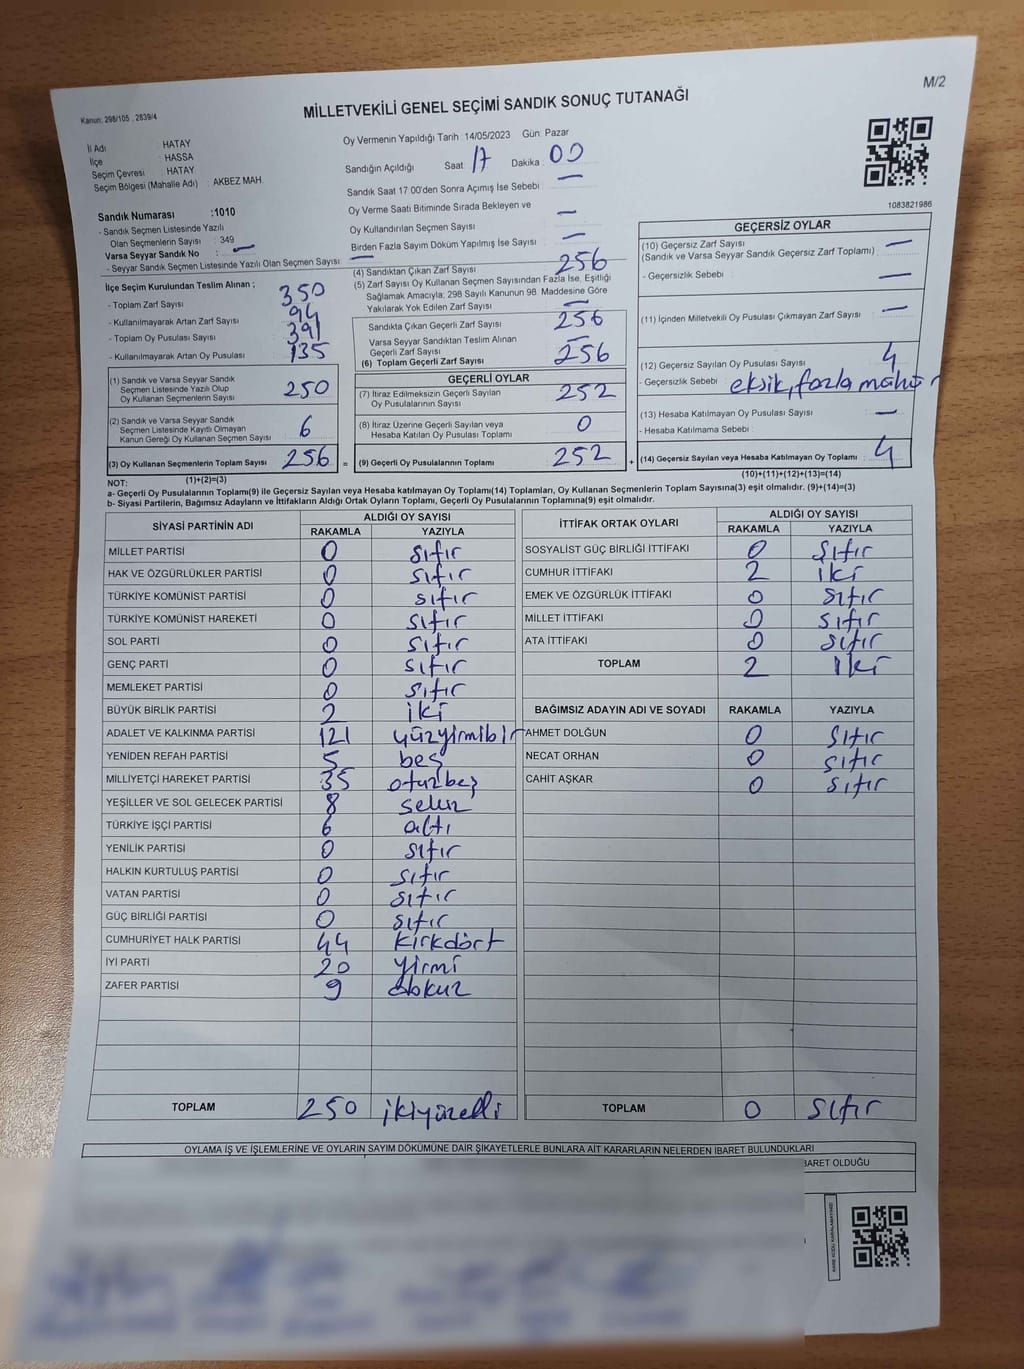 M/2
MİLLETVEKİLİ GENEL SEÇİMİ SANDIK SONUÇ TUTANAĞI
Kanun: 298/105 , 2839/4
İl Adı : HATAY
İlçe : HASSA
Seçim Çevresi : HATAY
Seçim Bölgesi (Mahalle Adı) : AKBEZ MAH.
Oy Vermenin Yapıldığı Tarih : 14/05/2023 Gün: Pazar
Sandığın Açıldığı Saat : 17 Dakika : 00
Sandık Saat 17:00'den Sonra Açımış İse Sebebi : —
Oy Verme Saati Bitiminde Sırada Bekleyen ve
Oy Kullandırılan Seçmen Sayısı : —
Birden Fazla Sayım Döküm Yapılmış İse Sayısı : —
1083821986
Sandık Numarası :1010
- Sandık Seçmen Listesinde Yazılı
Olan Seçmenlerin Sayısı : 349
Varsa Seyyar Sandık No : —
- Seyyar Sandık Seçmen Listesinde Yazılı Olan Seçmen Sayısı : —
İlçe Seçim Kurulundan Teslim Alınan ;
- Toplam Zarf Sayısı : 350
- Kullanılmayarak Artan Zarf Sayısı : 94
- Toplam Oy Pusulası : 391
- Kullanılmayarak Artan Oy Pusulası : 135
(1) Sandık ve Varsa Seyyar Sandık
Seçmen Listesinde Yazılı Olup
Oy Kullanan Seçmenlerin Sayısı : 250
(2) Sandık ve Varsa Seyyar Sandık
Seçmen Listesinde Kayıtlı Olmayan
Kanun Gereği Oy Kullanan Seçmen Sayısı : 6
(3) Oy Kullanan Seçmenlerin Toplam Sayısı : 256 =
(4) Sandıktan Çıkan Zarf Sayısı : 256
(5) Zarf Sayısı Oy Kullanan Seçmen Sayısından Fazla İse, Eşitliği
Sağlamak Amacıyla; 298 Sayılı Kanunun 98. Maddesine Göre
Yakılarak Yok Edilen Zarf Sayısı : —
Sandıkta Çıkan Geçerli Zarf Sayısı : 256
Varsa Seyyar Sandıktan Teslim Alınan
Geçerli Zarf Sayısı : —
(6) Toplam Geçerli Zarf Sayısı : 256
GEÇERLİ OYLAR
(7) İtiraz Edilmeksizin Geçerli Sayılan
Oy Pusulalarının Sayısı : 252
(8) İtiraz Üzerine Geçerli Sayılan veya
Hesaba Katılan Oy Pusulası Toplamı : 0
(9) Geçerli Oy Pusulalarının Toplamı : 252 +
GEÇERSİZ OYLAR
(10) Geçersiz Zarf Sayısı : —
(Sandık ve Varsa Seyyar Sandık Geçersiz Zarf Toplamı)
- Geçersizlik Sebebi : —
(11) İçinden Milletvekili Oy Pusulası Çıkmayan Zarf Sayısı : —
(12) Geçersiz Sayılan Oy Pusulası Sayısı : 4
- Geçersizlik Sebebi : eksik, fazla mühür
(13) Hesaba Katılmayan Oy Pusulası Sayısı : —
- Hesaba Katılmama Sebebi :
(14) Geçersiz Sayılan veya Hesaba Katılmayan Oy Toplamı : 4
NOT: (1)+(2)=(3) (10)+(11)+(12)+(13)=(14)
a- Geçerli Oy Pusulalarının Toplamı(9) ile Geçersiz Sayılan veya Hesaba katılmayan Oy Toplamı(14) Toplamları, Oy Kullanan Seçmenlerin Toplam Sayısına(3) eşit olmalıdır. (9)+(14)=(3)
b- Siyasi Partilerin, Bağımsız Adayların ve İttifakların Aldığı Ortak Oyların Toplamı, Geçerli Oy Pusulalarının Toplamına(9) eşit olmalıdır.
SİYASİ PARTİNİN ADI ALDIĞI OY SAYISI
RAKAMLA YAZIYLA
MİLLET PARTİSİ 0 sıfır
HAK VE ÖZGÜRLÜKLER PARTİSİ 0 sıfır
TÜRKİYE KOMÜNİST PARTİSİ 0 sıfır
TÜRKİYE KOMÜNİST HAREKETİ 0 sıfır
SOL PARTİ 0 sıfır
GENÇ PARTİ 0 sıfır
MEMLEKET PARTİSİ 0 sıfır
BÜYÜK BİRLİK PARTİSİ 2 iki
ADALET VE KALKINMA PARTİSİ 121 yüzyirmibir
YENİDEN REFAH PARTİSİ 5 beş
MİLLİYETÇİ HAREKET PARTİSİ 35 otuzbeş
YEŞİLLER VE SOL GELECEK PARTİSİ 8 sekiz
TÜRKİYE İŞÇİ PARTİSİ 6 altı
YENİLİK PARTİSİ 0 sıfır
HALKIN KURTULUŞ PARTİSİ 0 sıfır
VATAN PARTİSİ 0 sıfır
GÜÇ BİRLİĞİ PARTİSİ 0 sıfır
CUMHURİYET HALK PARTİSİ 44 kırkdört
İYİ PARTİ 20 yirmi
ZAFER PARTİSİ 9 dokuz
TOPLAM 250 ikiyüzelli
İTTİFAK ORTAK OYLARI ALDIĞI OY SAYISI
RAKAMLA YAZIYLA
SOSYALİST GÜÇ BİRLİĞİ İTTİFAKI 0 sıfır
CUMHUR İTTİFAKI 2 iki
EMEK VE ÖZGÜRLÜK İTTİFAKI 0 sıfır
MİLLET İTTİFAKI 0 sıfır
ATA İTTİFAKI 0 sıfır
TOPLAM 2 iki
BAĞIMSIZ ADAYIN ADI VE SOYADI RAKAMLA YAZIYLA
AHMET DOLĞUN 0 sıfır
NECAT ORHAN 0 sıfır
CAHİT AŞKAR 0 sıfır
TOPLAM 0 sıfır
OYLAMA İŞ VE İŞLEMLERİNE VE OYLARIN SAYIM DÖKÜMÜNE DAİR ŞİKAYETLERLE BUNLARA AİT KARARLARIN NELERDEN İBARET BULUNDUKLARI
BARET OLDUĞU
KARE KODU KARALAMAYINIZ!